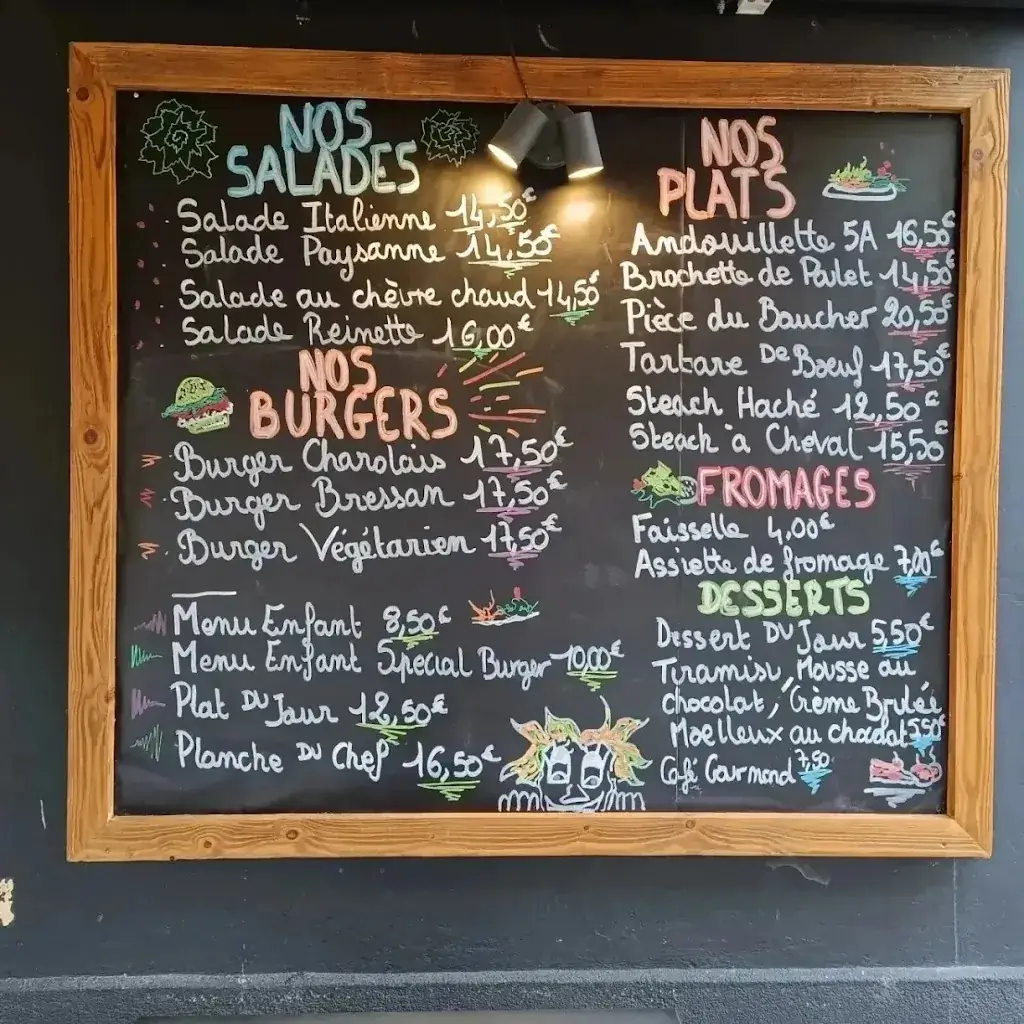 NOS
SALADES
Salade Italienne 14,50€
Salade Paysanne 14,50€
Salade au chèvre chaud 14,50€
Salade Reinette 16,00€
NOS
BURGERS
Burger Charolais 17,50€
Burger Bressan 17,50€
Burger Végétarien 17,50€
Menu Enfant 8,50€
Menu Enfant Special Burger 10,00€
Plat Du Jour 12,50€
Planche Du Chef 16,50€
NOS
PLATS
Andouillette 5A 16,50€
Brochette de Poulet 14,50€
Pièce du Boucher 20,50€
Tartare De Boeuf 17,50€
Steach Haché 12,50€
Steach à Cheval 15,50€
FROMAGES
Faisselle 4,00€
Assiette de fromage 7,00€
DESSERTS
Dessert Du Jour 5,50€
Tiramisu, Mousse au
chocolat, Crème Brulée
Moelleux au chocolat 5,50€
Café Gourmand 7,50